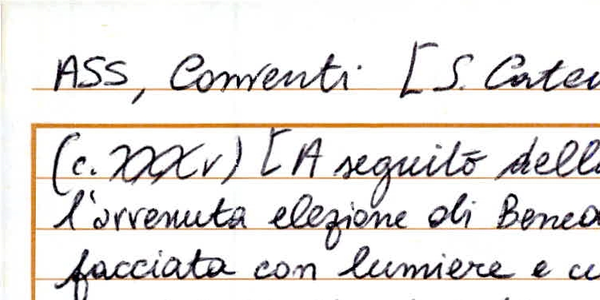 ASS, Conventi [S. Cate
(c. XXXv) [A seguito dell
l'avvenuta elezione di Bene
facciata con lumiere e